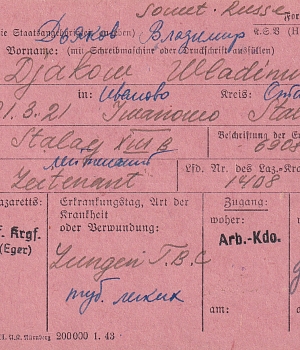 Sowet. Russe
ie Staatsangehörigkeit
Дьяков Владимир
Vorname: (mit Schreibmaschine oder Druckschrift ausfüllen) K.S.V
Djakow Wladimi
in: Иваново Kreis: Ста
1.3.21 Iwanowo Stal
Stalag XIII B Beschriftung der E
690
лейтенант
Leutenant Lfd. Nr. des Laz.-Kra
1408
azaretts: Erkrankungstag, Art der Zugang:
Krankheit woher:
f. Krgf. oder Verwundung Arb.-Kdo.
(Eger)
Lungen T.B.C
туб. легких
am: am:
Nürnberg 200000 1. 43